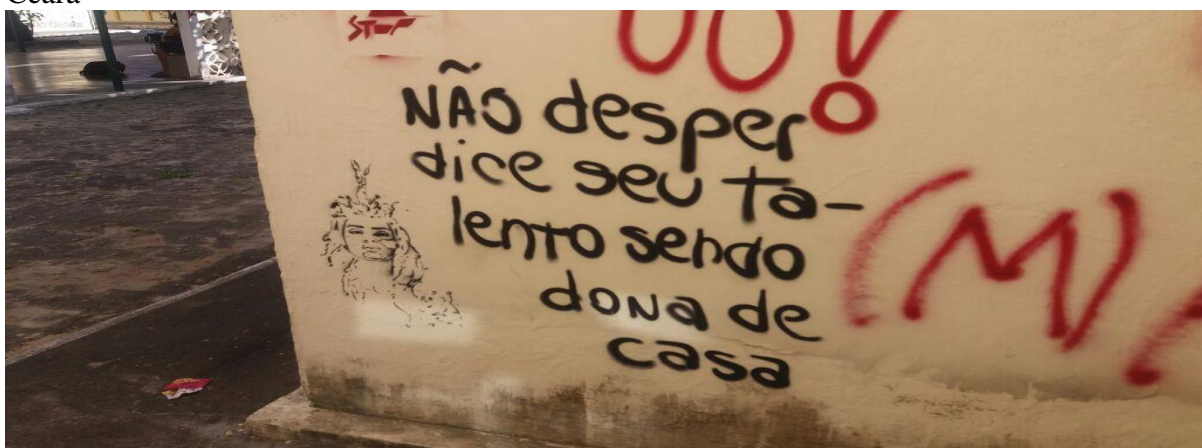 Ceará
STOP
NÃO desper
dice seu ta-
lento sendo
dona de
casa
(M)